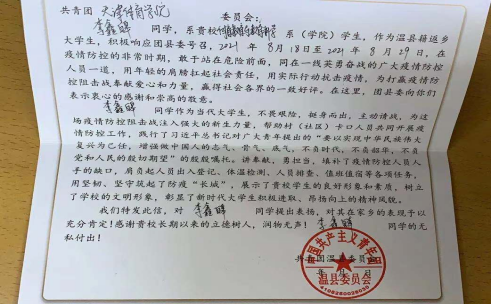 共青团 天津体育学院 委员会：
李鑫 同学，系贵校 系（学院）学生，作为温县籍返乡
大学生，积极响应团县委号召，2021年8月18日至2021年8月29日，在
疫情防控的非常时期，敢于站在危险前面，同在一线英勇奋战的广大疫情防控
人员一道，用年轻的肩膀扛起社会责任，用实际行动抗击疫情，为打赢疫情防
控阻击战奉献爱心和力量，赢得社会各界的一致好评。在这里，团县委向你们
表示衷心的感谢和崇高的敬意。
李鑫 同学作为当代大学生，不畏艰险，挺身而出，主动请战，为这
场疫情防控阻击战注入强大的新生力量，帮助村（社区）卡口人员共同开展疫
情防控工作，践行了习近平总书记对广大青年提出的“要以实现中华民族伟大
复兴为己任，增强做中国人的志气、骨气、底气，不负时代，不负韶华，不负
党和人民的殷切期望”的殷殷嘱托。讲奉献，勇担当，填补了疫情防控人员人
手的缺口，肩负起人员出入登记、体温检测、人员排查、值班值宿等各项任务，
用坚韧、坚守筑起了防疫“长城”，展示了贵校学生的良好形象和素质，树立
了学校的文明形象，彰显了新时代大学生积极进取、昂扬向上的精神风貌。
我们特发此信，对 李鑫 同学提出表扬，对其在家乡的表现予以
充分肯定！感谢贵校长期以来的立德树人，润物无声！ 李鑫 同学的无
私付出！
共青团温县委员会
年 月 日
中国共产主义青年团
温县委员会